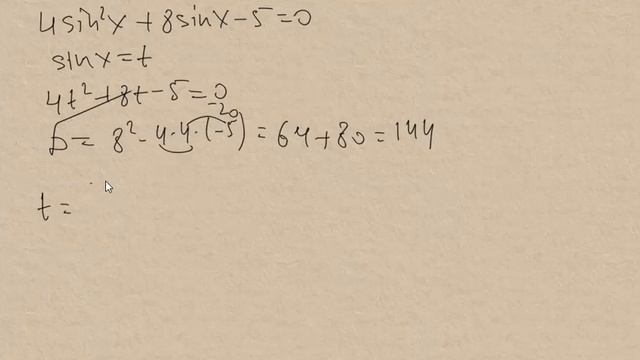 4sin²x + 8sinx - 5 = 0
sinx = t
4t² + 8t - 5 = 0
-20
D = 8² - 4·4·(-5) = 64 + 80 = 144
t =